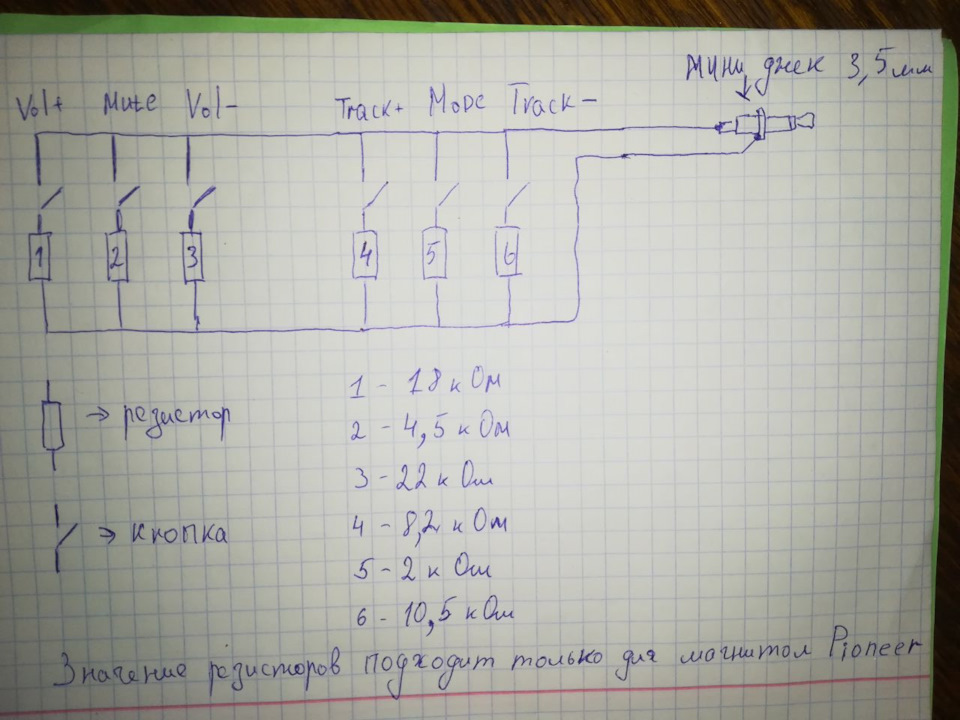 мини джек 3,5мм
Vol+ Mute Vol- Track+ Mode Track-
1 2 3 4 5 6
1 - 18 к Ом
→ резистор
2 - 4,5 к Ом
3 - 22 к Ом
→ кнопка
4 - 8,2 к Ом
5 - 2 к Ом
6 - 10,5 к Ом
Значение резисторов подходит только для магнитол Pioneer